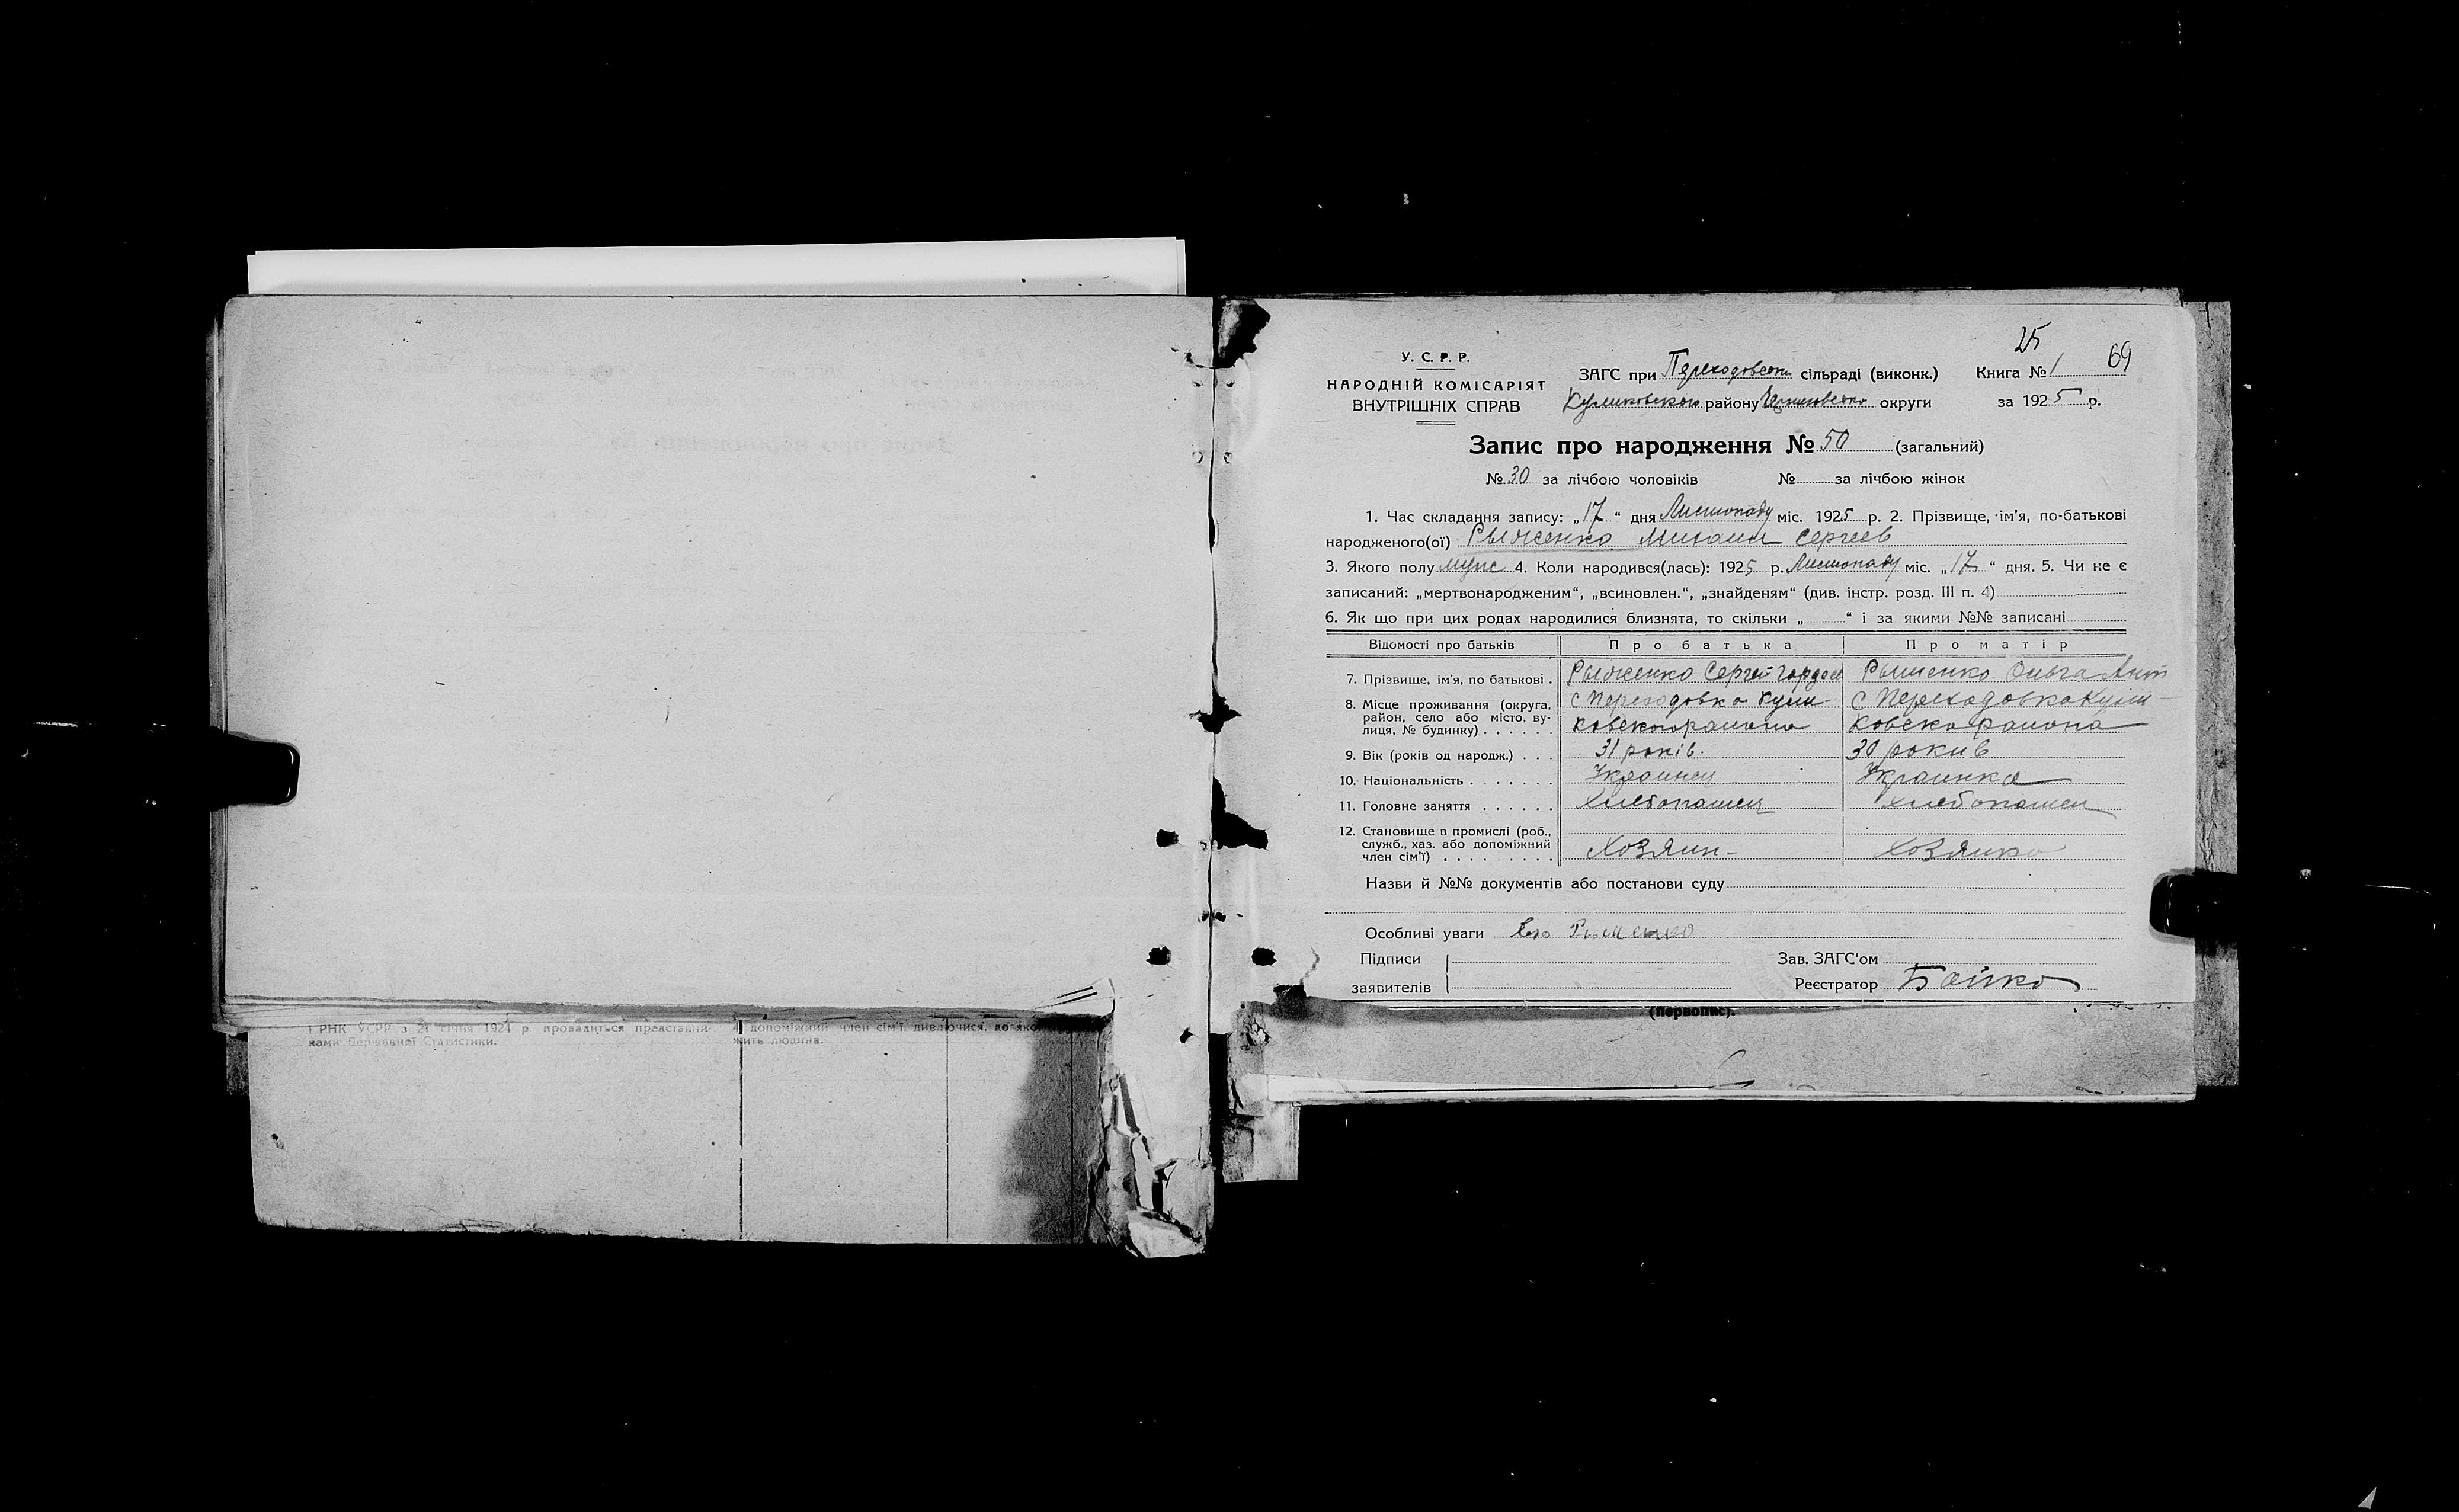 25
У. С. Р. Р.
НАРОДНІЙ КОМІСАРІЯТ
ВНУТРІШНІХ СПРАВ
ЗАГС при Переходовском сільраді (виконк.)
Куликовского району Черниговского округи
Книга № 1 69
за 1925 р.
Запис про народження № 50 (загальний)
№ 30 за лічбою чоловіків № за лічбою жінок
1. Час складання запису: „17“ дня Листопаду міс. 1925 р. 2. Прізвище, ім'я, по-батькові
народженого(ої) Рыженко Михаил Сергеев
3. Якого полу муж 4. Коли народився(лась): 1925 р. Листопаду міс. „17“ дня. 5. Чи не є
записаний: „мертвонародженим“, „всиновлен.“, „знайденям“ (див. інстр. розд. III п. 4)
6. Як що при цих родах народилися близнята, то скільки „ “ і за якими №№ записані
Відомості про батьків Про батька Про матір
7. Прізвище, ім'я, по батькові . Рыженко Сергей Гордеев Рыженко Ольга Ант
8. Місце проживання (округа, район, село або місто, вулиця, № будинку) . . . . . с Переходовка Кули- с Переходовка Кули-
ковского района ковско района
9. Вік (років од народж.) . . . 31 років. 30 рокив
10. Національність . . . . . . . Украинец Украинка
11. Головне заняття . . . . . . Хлебопашец хлебопашец
12. Становище в промислі (роб.,
служб., хаз. або допоміжний
член сім'ї) . . . . . . . . . Хозяин- Хозяйка
Назви й №№ документів або постанови суду
Особливі уваги
Підписи
заявителів
Зав. ЗАГС'ом
Реєстратор Бойко
(первопис).
і РНК УСРР з 21 січня 1924 р. провадиться представни-
ками Державної Статистики.
допоміжний член сім'ї, дивлючися, до яко
жить людина.